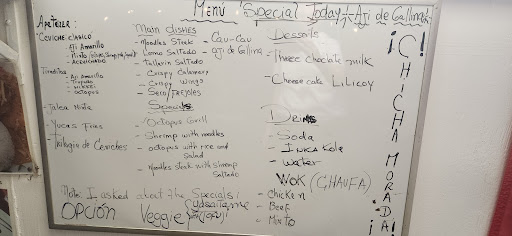 Menu "Special Today" Aji de Gallina
Apetezer:
"Ceviche clasico"
- Aji Amarillo
- Mixto
- Acevichado
Tiradito
- Aji amarillo
- Nikkei
- octopus
- Jalea Mixta
- Yucas Fries
- Trilogia de Ceviches
Main dishes
- Noodles Steak
- Lomo Saltado
- Tallarin Saltado
- Crispy Calamary
- Crispy Wings
- Seco/Frejoles
- Cau-Cau
- aji de Gallina
Specials
- Octopus Grill
- Shrimp with noodles
- octopus with rice and
Salad
- Noodles steak with shrimp
Saltado
Desserts
- Three Chocolate milk
- Cheese cake Lilicoy
Drinks
- Soda
- Inca Kola
- water
Wok (CHAUFA)
- Chicken
- Beef
- Mixto
¡CHICHA MORADA!
Note: I asked about the Specials!
OPCIÓN Veggie